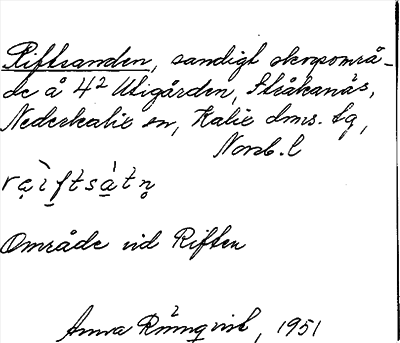 Riftsanden, sandigt skogsområ-
de å 4² Utigården, Stråkanäs,
Nederkalix sn, Kalix dms. tg,
Norrb. l
Område vid Riften
Anna Rönnqvist, 1951